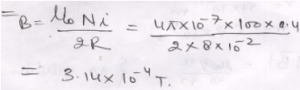 = B = μ₀Ni / 2R = 4π×10⁻⁷×100×0.4 / 2×8×10⁻²
= 3.14×10⁻⁴ T.